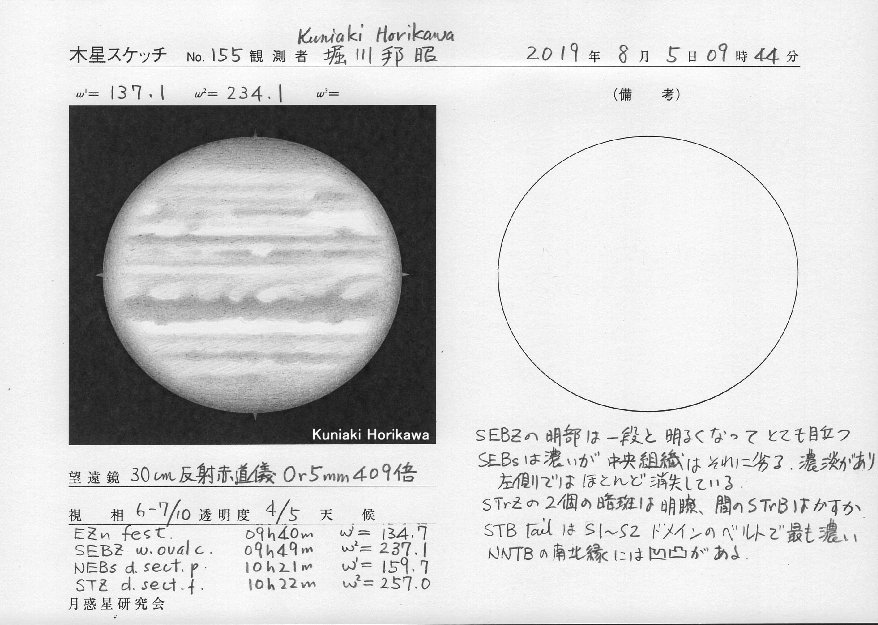 Kuniaki Horikawa
木星スケッチ No. 155 観測者 堀川邦昭 2019年 8月 5日 09時 44分
ω¹= 137.1 ω²= 234.1 ω³=
(備 考)
Kuniaki Horikawa
望遠鏡 30cm反射赤道儀 Or5mm 409倍
視 相 6-7/10 透明度 4/5 天 候
EZn fest. 09h40m ω¹= 134.7
SEBZ w.oval c. 09h49m ω²= 237.1
NEBs d.sect.p. 10h21m ω¹= 159.7
STZ d.sect.f. 10h22m ω²= 257.0
月惑星研究会
SEBZの明部は一段と明るくなってとても目立つ
SEBsは濃いが中央組織はそれに劣る. 濃淡があり
左側ではほとんど消失している.
STrZの2個の暗斑は明瞭、間のSTrBはかすか.
STB tailはS1〜S2ドメインのベルトで最も濃い
NNTBの南北縁には凹凸がある.